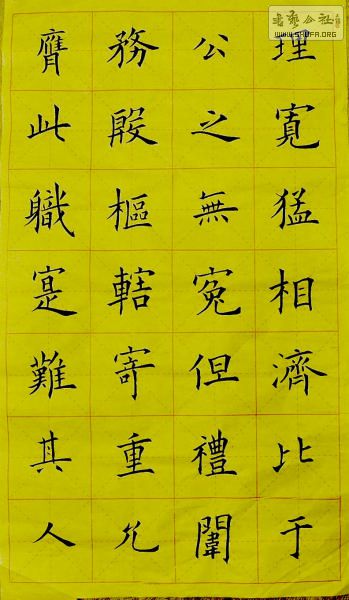 理寬猛相濟比于
公之無冤但禮闈
務殷樞轄寄重允
膺此職寔難其人
WWW.SHUFA.ORG